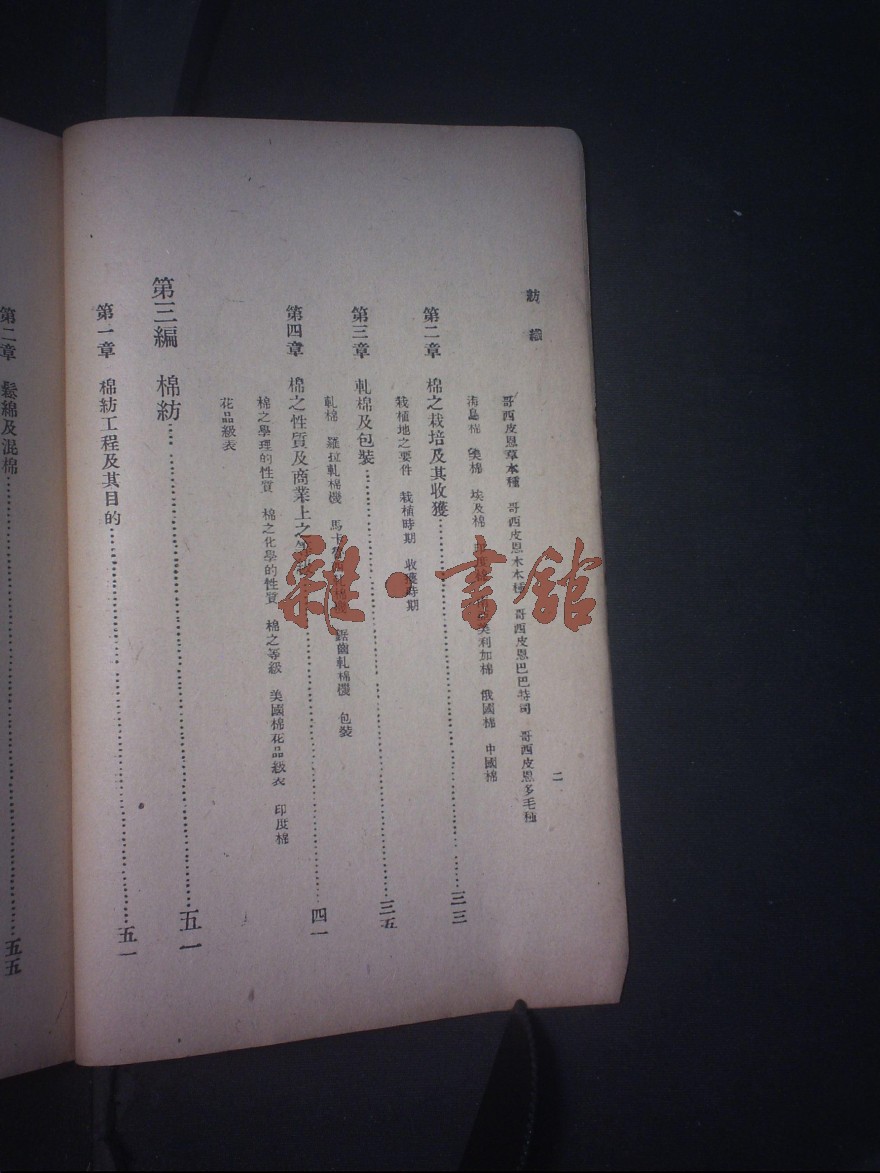 紡織
二
哥西皮恩草本種　哥西皮恩木本種　哥西皮恩巴巴特司　哥西皮恩多毛種
海島棉　美棉　埃及棉　印度棉　美利加棉　俄國棉　中國棉
第二章　棉之栽培及其收獲……三三
栽植地之要件　栽植時期　收獲時期
第三章　軋棉及包裝……三五
軋棉　羅拉軋棉機　馬卡　軋棉機　鋸齒軋棉機　包裝
第四章　棉之性質及商業上之等級……四一
棉之學理的性質　棉之化學的性質　棉之等級　美國棉花品級表　印度棉
花品級表
第三編　棉紡……五一
第一章　棉紡工程及其目的……五一
第二章　鬆綿及混棉……五五
雜·書館